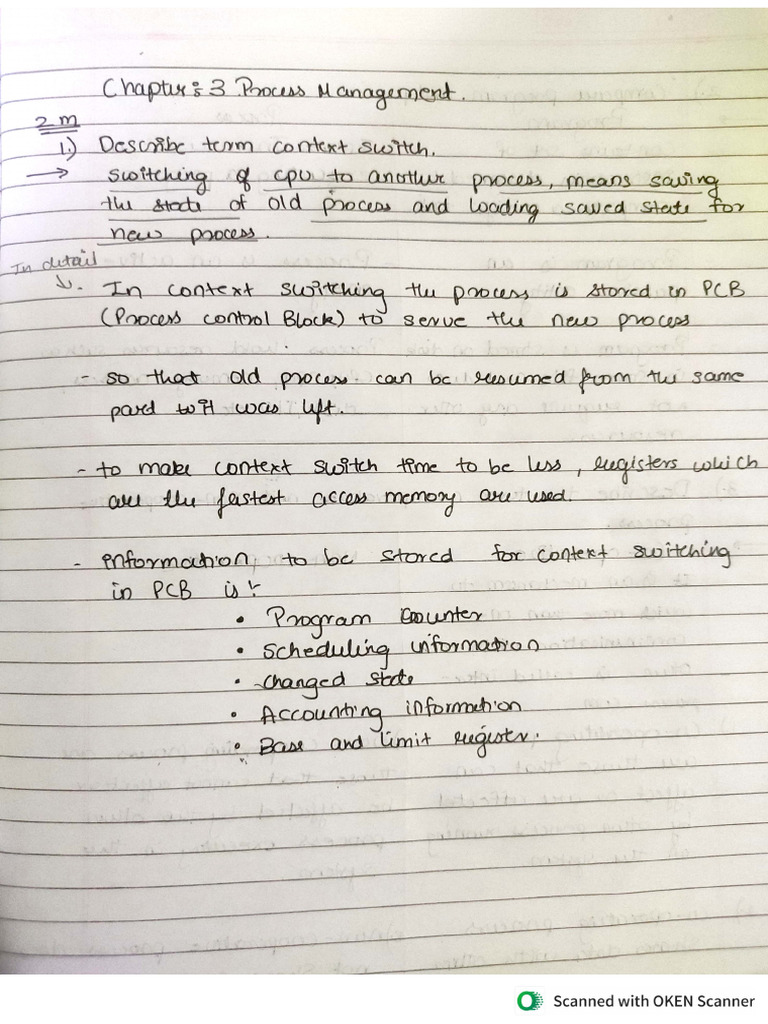 Chapter: 3 Process Management.
2 m
1.) Describe term context switch.
→ switching of cpu to another process, means saving
the state of old process and loading saved state for
new process.
In detail
↓. In context switching the process is stored in PCB
(Process control Block) to serve the new process
- so that old process can be resumed from the same
it was left.
- to make context switch time to be less, registers which
are the fastest access memory are used.
- information to be stored for context switching
in PCB is :-
• Program Counter
• Scheduling information
• changed state
• Accounting information
• Base and limit register.
Scanned with OKEN Scanner